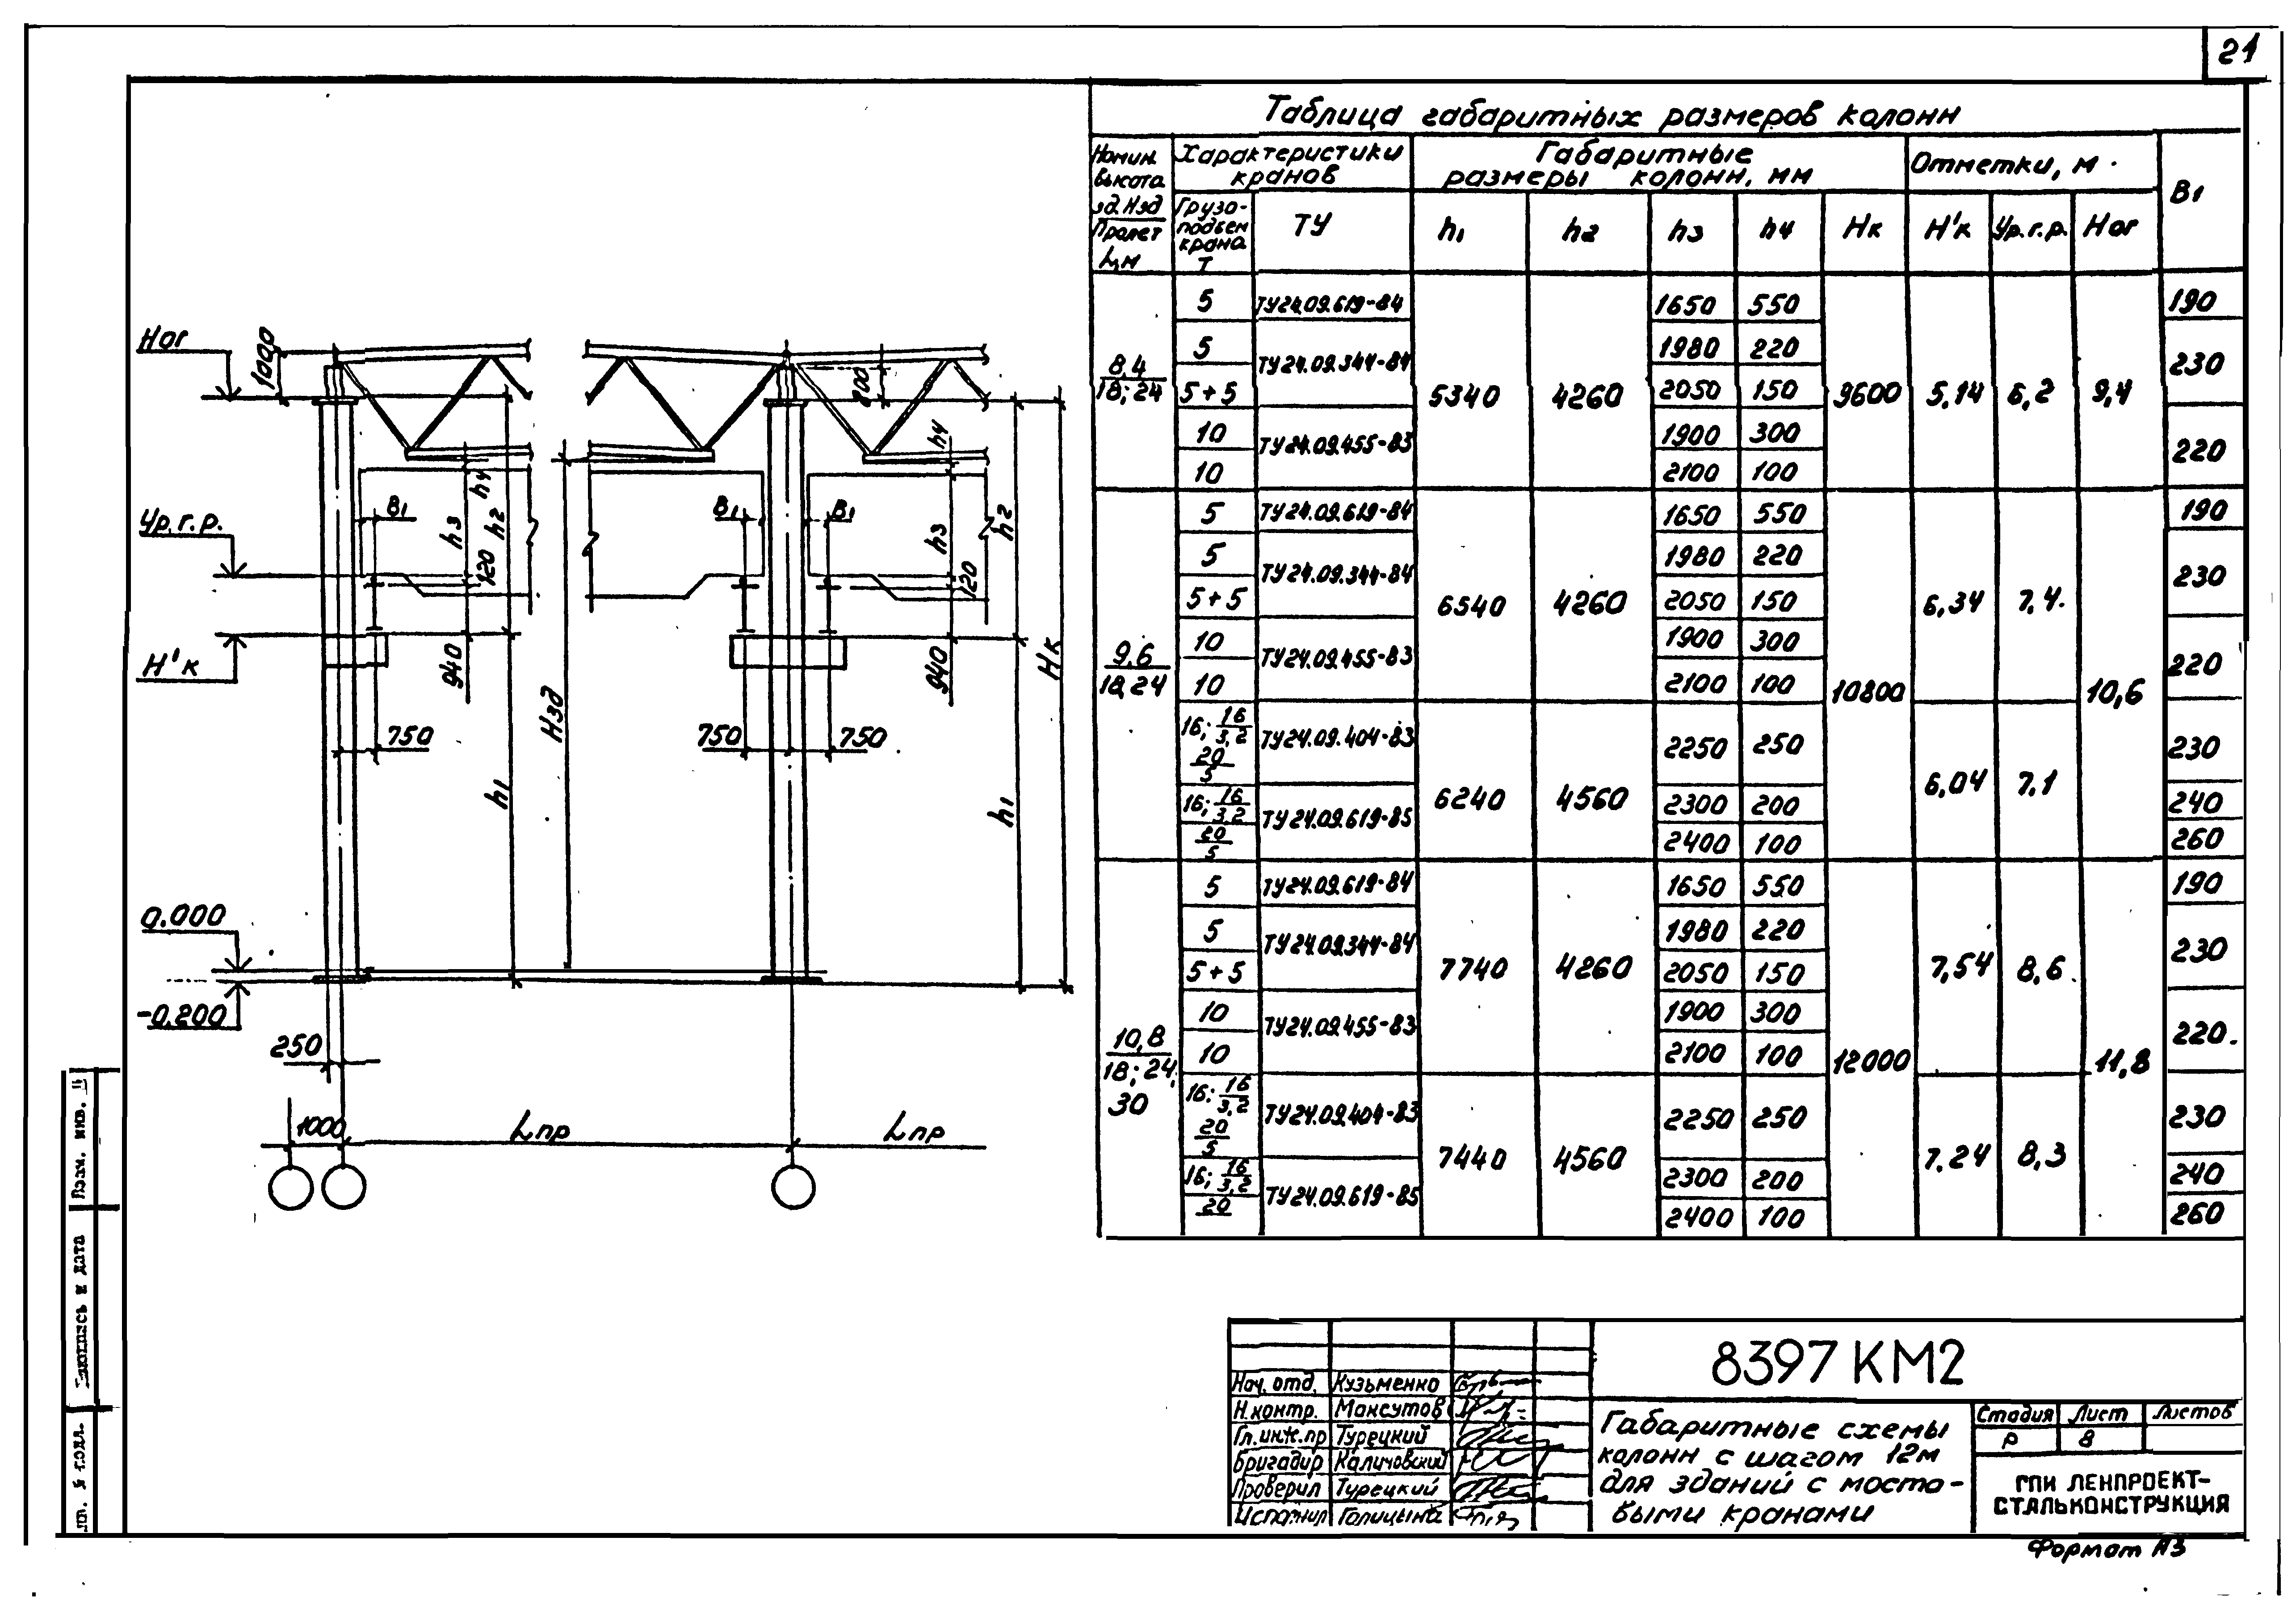 21
Таблица габаритных размеров колонн
Номин. высота зд. Нзд / Пролет L, м
Характеристики кранов
Габаритные размеры колонн, мм
Отметки, м
В1
Грузоподъем крана Т
ТУ
h1
h2
h3
h4
Нк
Н'к
Ур.г.р.
Ног
8,4 / 18; 24
5 ТУ24.09.619-84 1650 550 190
5 ТУ24.09.344-84 1980 220 230
5+5 2050 150
5340 4260 9600 5,14 6,2 9,4
10 ТУ24.09.455-83 1900 300 220
10 2100 100
9,6 / 18,24
5 ТУ24.09.619-84 1650 550 190
5 ТУ24.09.344-84 1980 220 230
5+5 2050 150
6540 4260 6,34 7,4.
10 ТУ24.09.455-83 1900 300 220
10 2100 100
10800 10,6
16; 16/3,2 20/5 ТУ24.09.404-83 2250 250 230
6240 4560 6,04 7,1
16; 16/3,2 ТУ24.09.619-85 2300 200 240
20/5 2400 100 260
10,8 / 18; 24, 30
5 ТУ24.09.619-84 1650 550 190
5 ТУ24.09.344-84 1980 220 230
5+5 2050 150
7740 4260 7,54 8,6
10 ТУ24.09.455-83 1900 300 220.
10 2100 100
12000 11,8
16; 16/3,2 20/5 ТУ24.09.404-83 2250 250 230
7440 4560 7,24 8,3
16; 16/3,2 ТУ24.09.619-85 2300 200 240
20 2400 100 260
Ног
1000
Ур.г.р.
Н'к
0.000
-0.200
В1
h4
h3
h2
120
940
750
h1
Нзд
В1
В1
750
750
h4
h3
h2
120
940
h1
Нк
250
1000
Lпр
Lпр
8397 КМ2
Нач. отд. Кузьменко
Н.контр. Максутов
Гл.инж.пр Турецкий
Бригадир Калиновский
Проверил Турецкий
Исполнил Голицына
Габаритные схемы
колонн с шагом 12м
для зданий с мосто-
выми кранами
Стадия Лист Листов
Р 8
ГПИ ЛЕНПРОЕКТ-
СТАЛЬКОНСТРУКЦИЯ
Формат А3
Взам. инв.
и дата
подл.